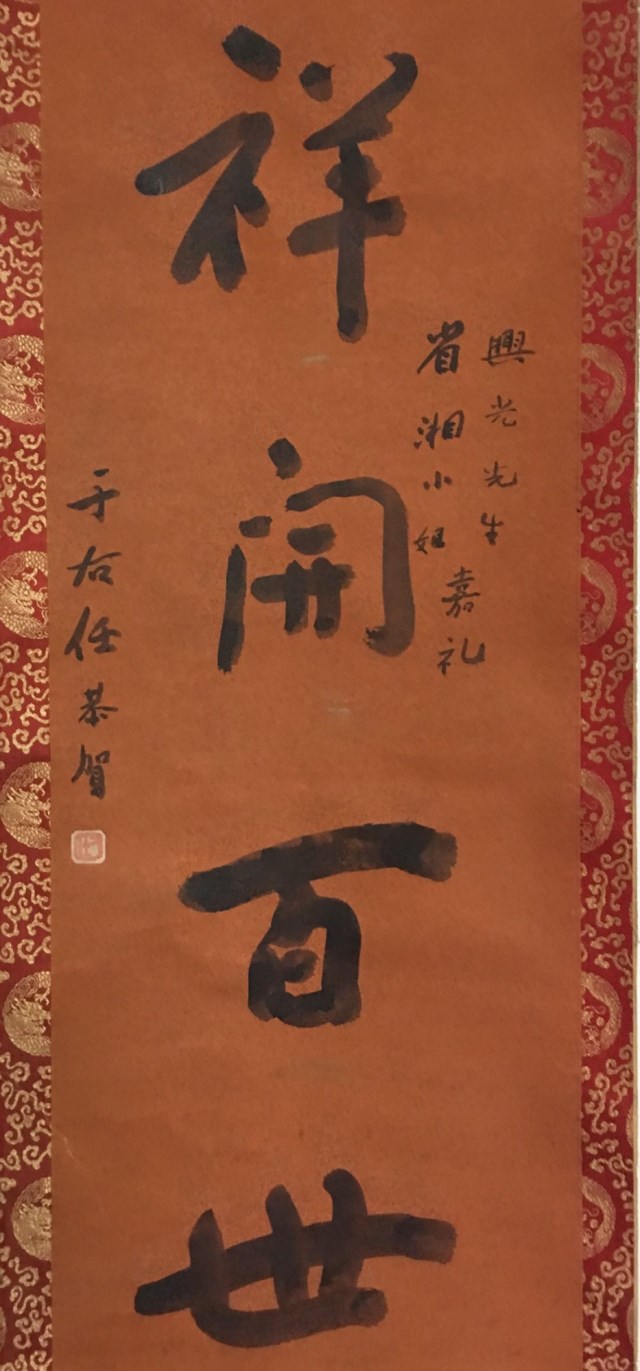 興光先生
省湘小姐
嘉礼
祥開百世
于右任恭賀